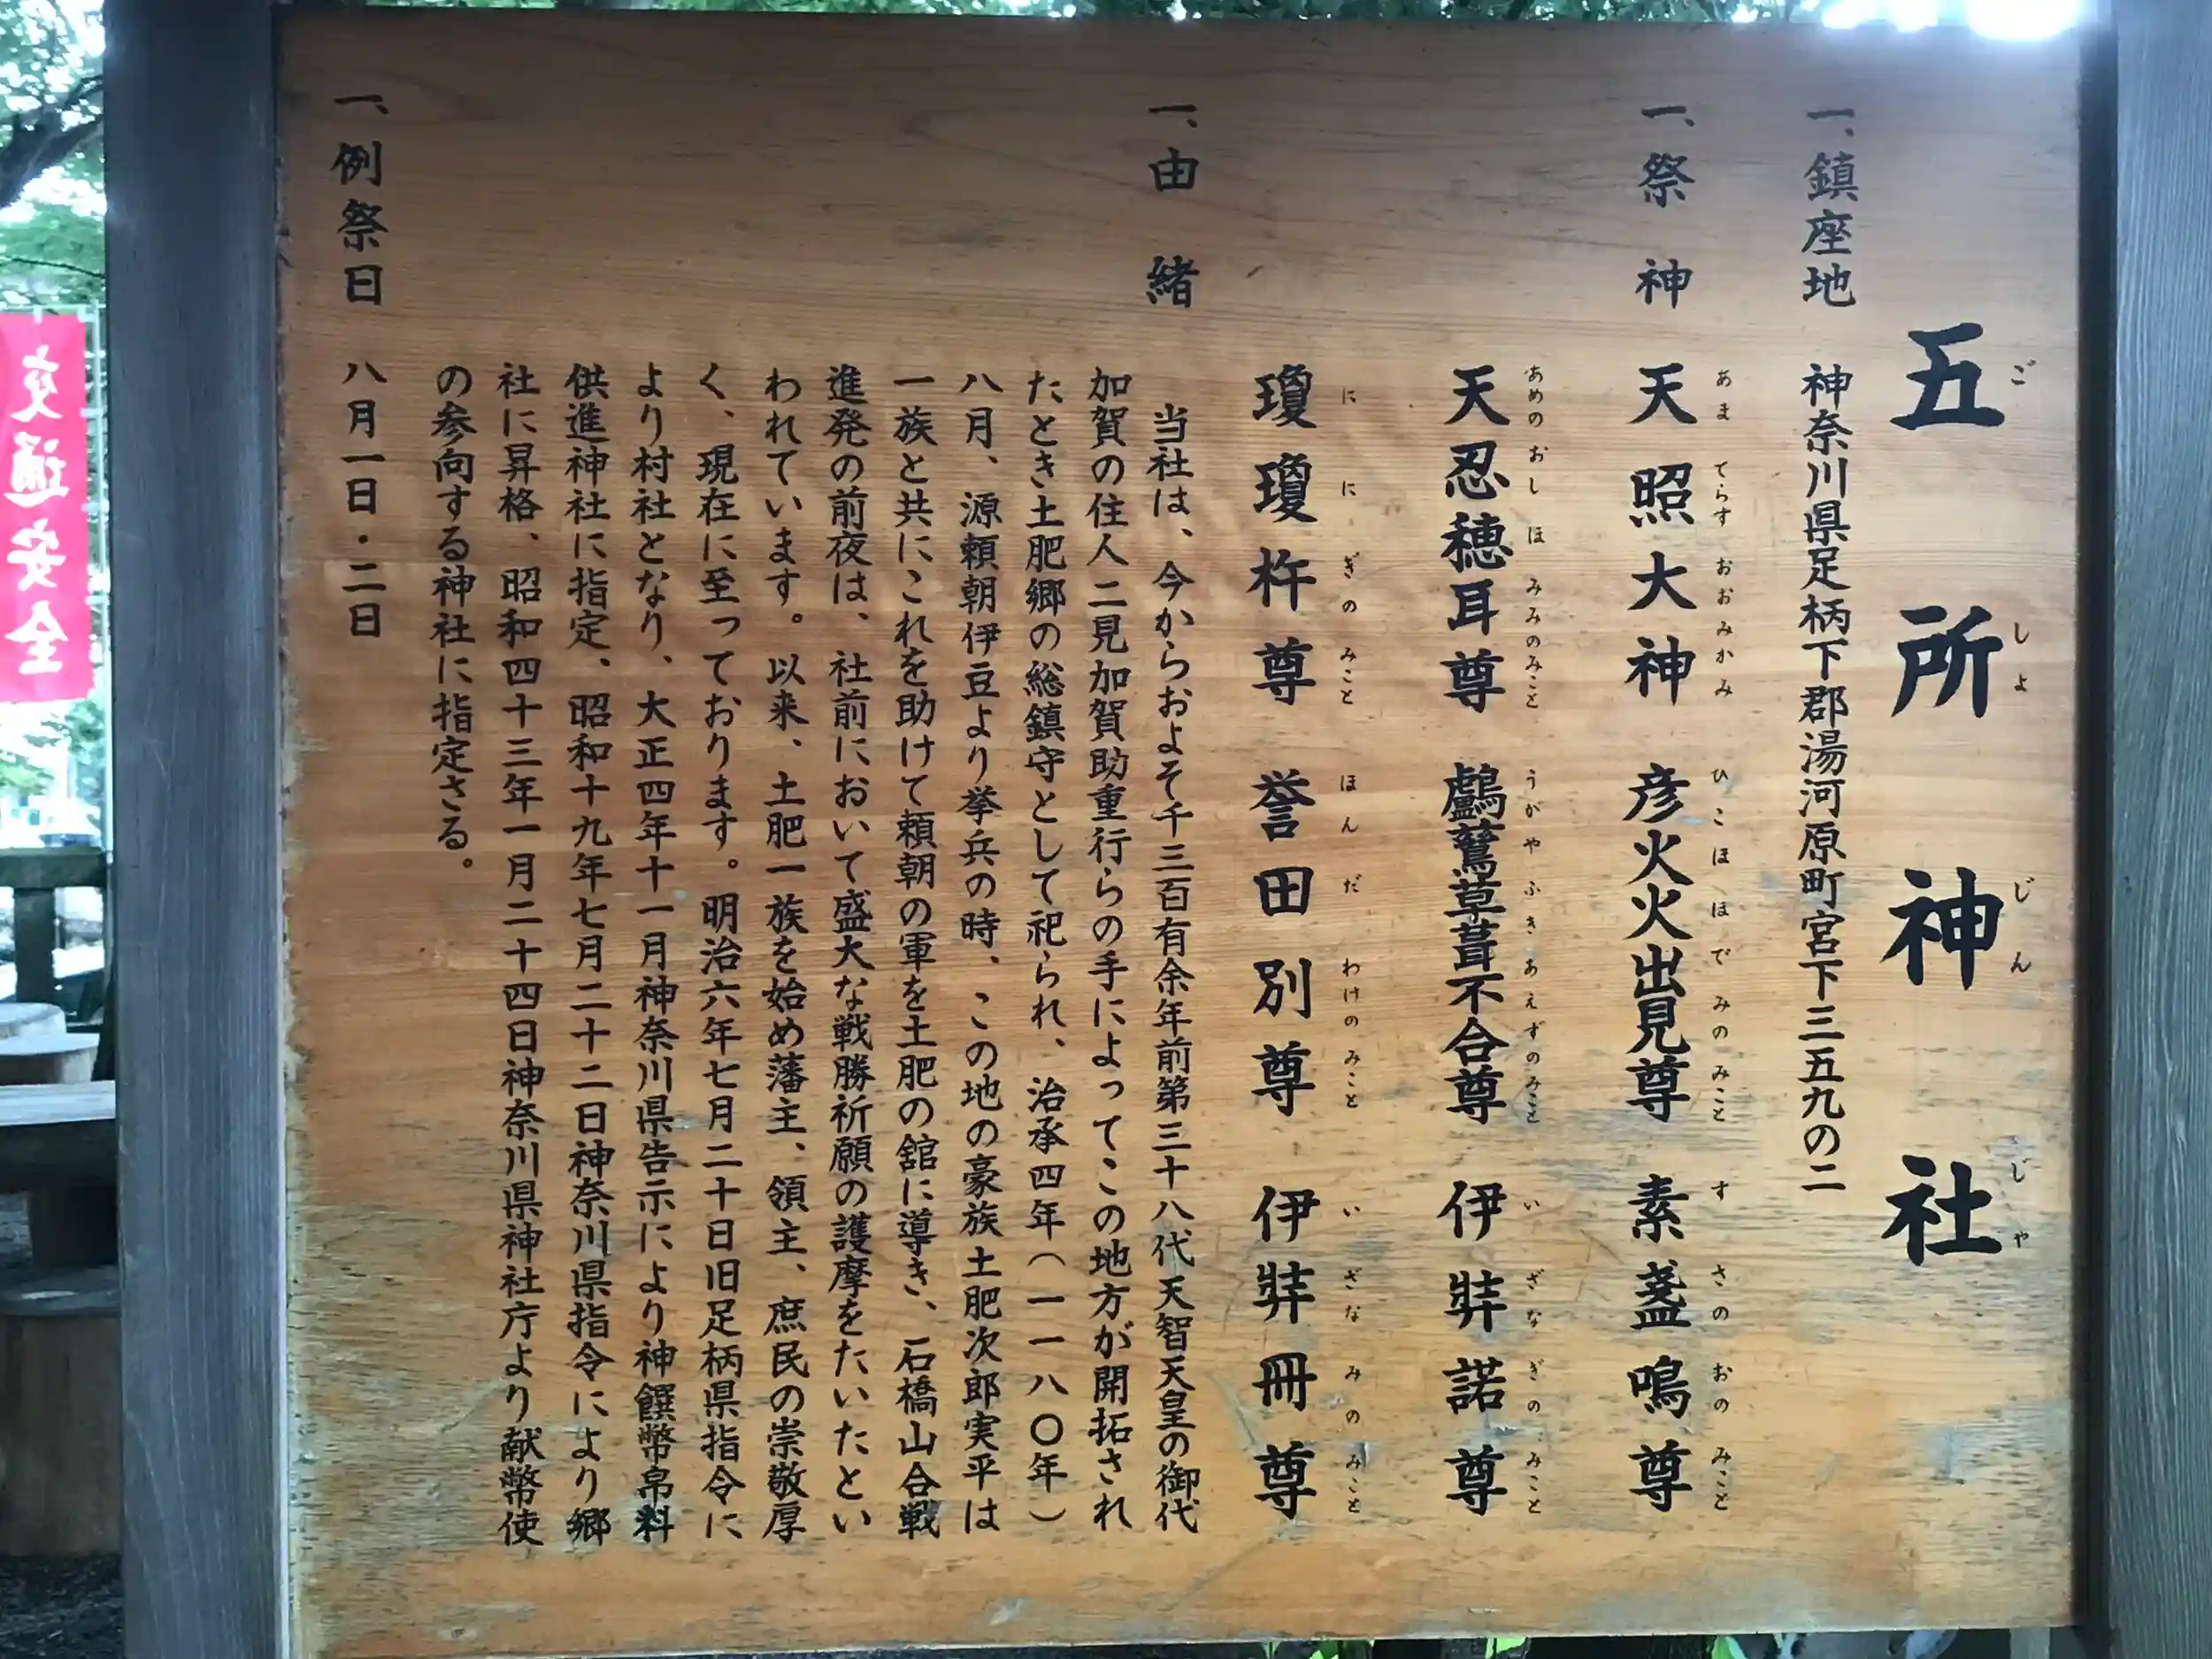 五所神社
ごしょじんじゃ
一、鎮座地 神奈川県足柄下郡湯河原町宮下三五九の二
一、祭神 天照大神 彦火火出見尊 素盞鳴尊
あまてらすおおみかみ ひこほほでみのみこと すさのおのみこと
天忍穂耳尊 鸕鶿草葺不合尊 伊弉諾尊
あめのおしほみみのみこと うがやふきあえずのみこと いざなぎのみこと
瓊瓊杵尊 誉田別尊 伊弉冊尊
ににぎのみこと ほんだわけのみこと いざなみのみこと
一、由緒
当社は、今からおよそ千三百有余年前第三十八代天智天皇の御代
加賀の住人二見加賀助重行らの手によってこの地方が開拓され
たとき土肥郷の総鎮守として祀られ、治承四年(一一八〇年)
八月、源頼朝伊豆より挙兵の時、この地の豪族土肥次郎実平は
一族と共にこれを助けて頼朝の軍を土肥の舘に導き、石橋山合戦
進発の前夜は、社前において盛大な戦勝祈願の護摩をたいたとい
われています。以来、土肥一族を始め藩主、領主、庶民の崇敬厚
く、現在に至っております。明治六年七月二十日旧足柄県指令に
より村社となり、大正四年十一月神奈川県告示により神饌幣帛料
供進神社に指定、昭和十九年七月二十二日神奈川県指令により郷
社に昇格、昭和四十三年一月二十四日神奈川県神社庁より献幣使
の参向する神社に指定さる。
一、例祭日 八月一日・二日
交通安全